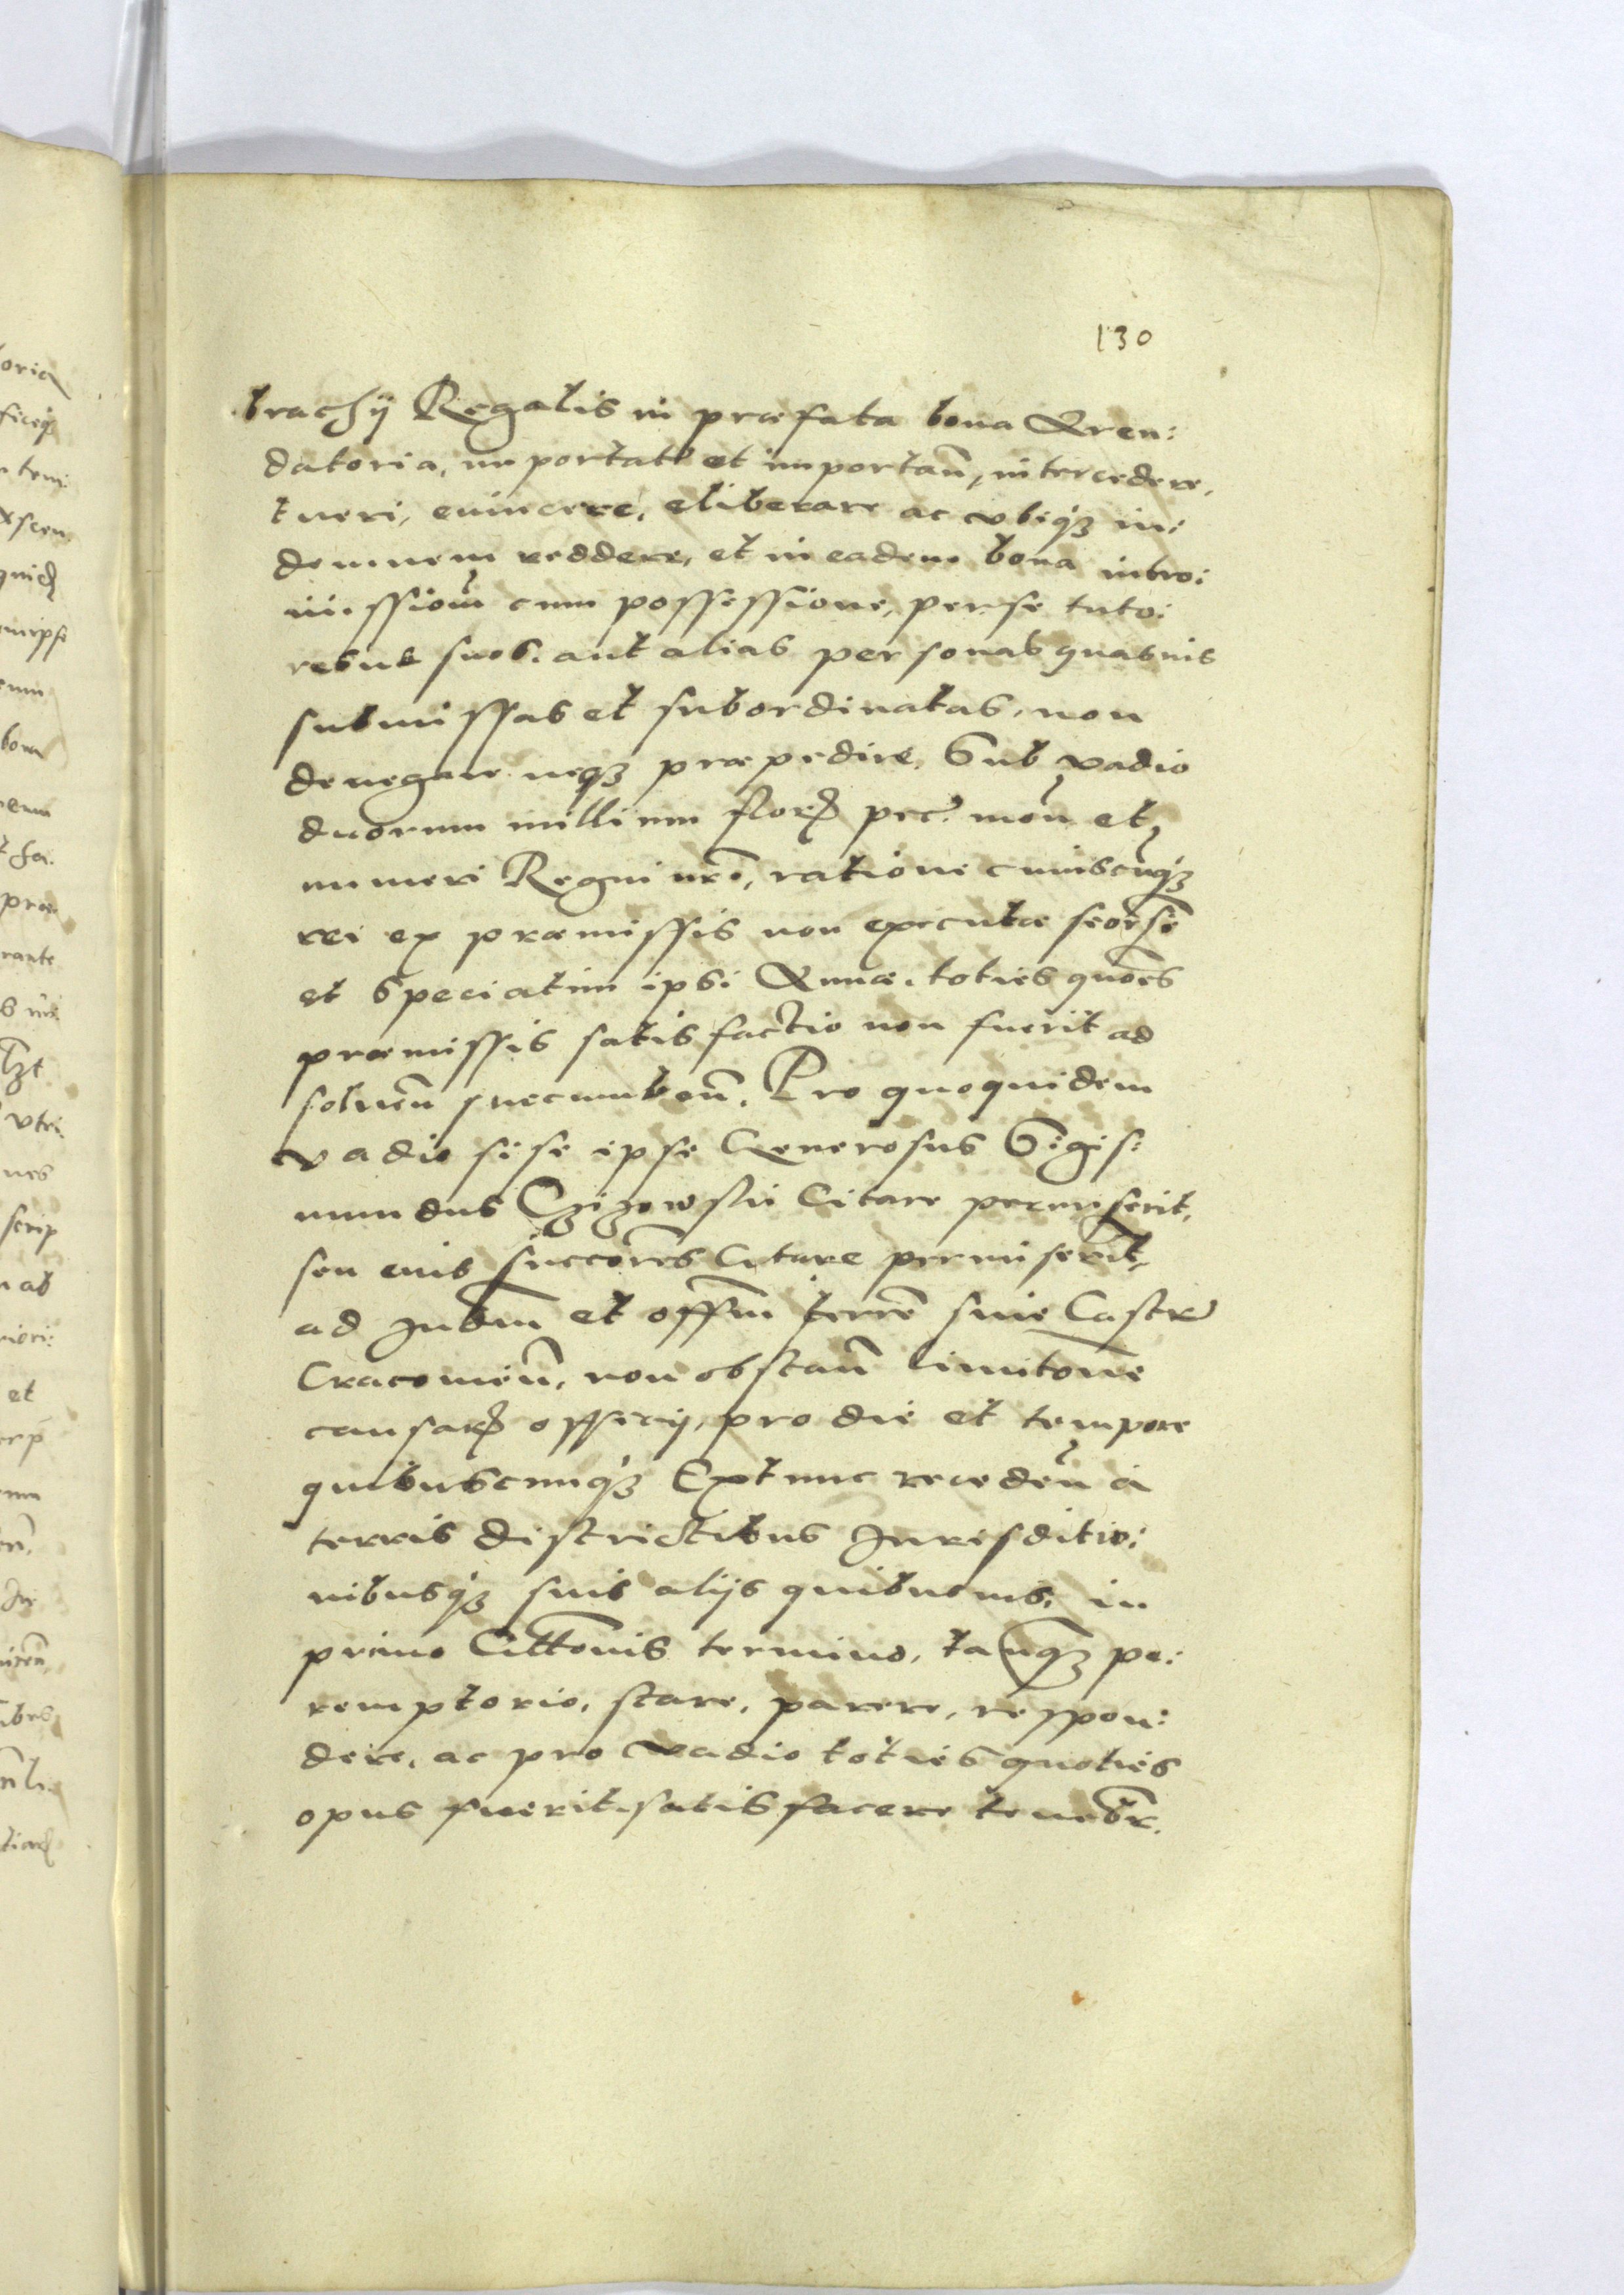 130
brachÿ Regalis in præfata bona Aren:
datoria, importat et importan̄, intercedere,
tueri, euincere, eliberare ac vbiqꝫ in:
demnem reddere, et in eadem bona intro:
missiom̄ cum possessione, per se tuto:
resue suos. aut alias personas quasuis
submissas et subordinatas, non
denegare neqꝫ præpedire, Sub vadio
duorum millium florꝝ pec: mon̄ et
numeri Regni nrī, ratione cuiuscūqꝫ
rei ex præmissis non executæ seorsē
et Speciatim ipsi Annæ. toties quoēs
præmissis satisfactio non fuerit ad
soluen̄ succumben̄. Pro quoquidem
vadio si se ipse Generosus Sigis:
mundus Czizowski Citare permiserit,
seu eius succōres Citare permiserīt,
ad Judm̄ et offm̄ terrē siue Castr
Cracouien̄, non obstan̄ limitōne
causarꝝ officij, pro die et tempore
quibuscunqꝫ Extunc receden̄ à
terris districtibus Jurisditio:
nibusqꝫ suis alijs quibusuis, in
primo Citt̄onis termino, tanqꝫ pe:
remptorio, stare, parere, respon:
dere, ac pro vadio toties quoties
opus fuerit satisfacere tenebr̄.
oria
ficeqꝫ
bona
fa.
præ
rante
vtri
nes
scrip
ab
riori:
et